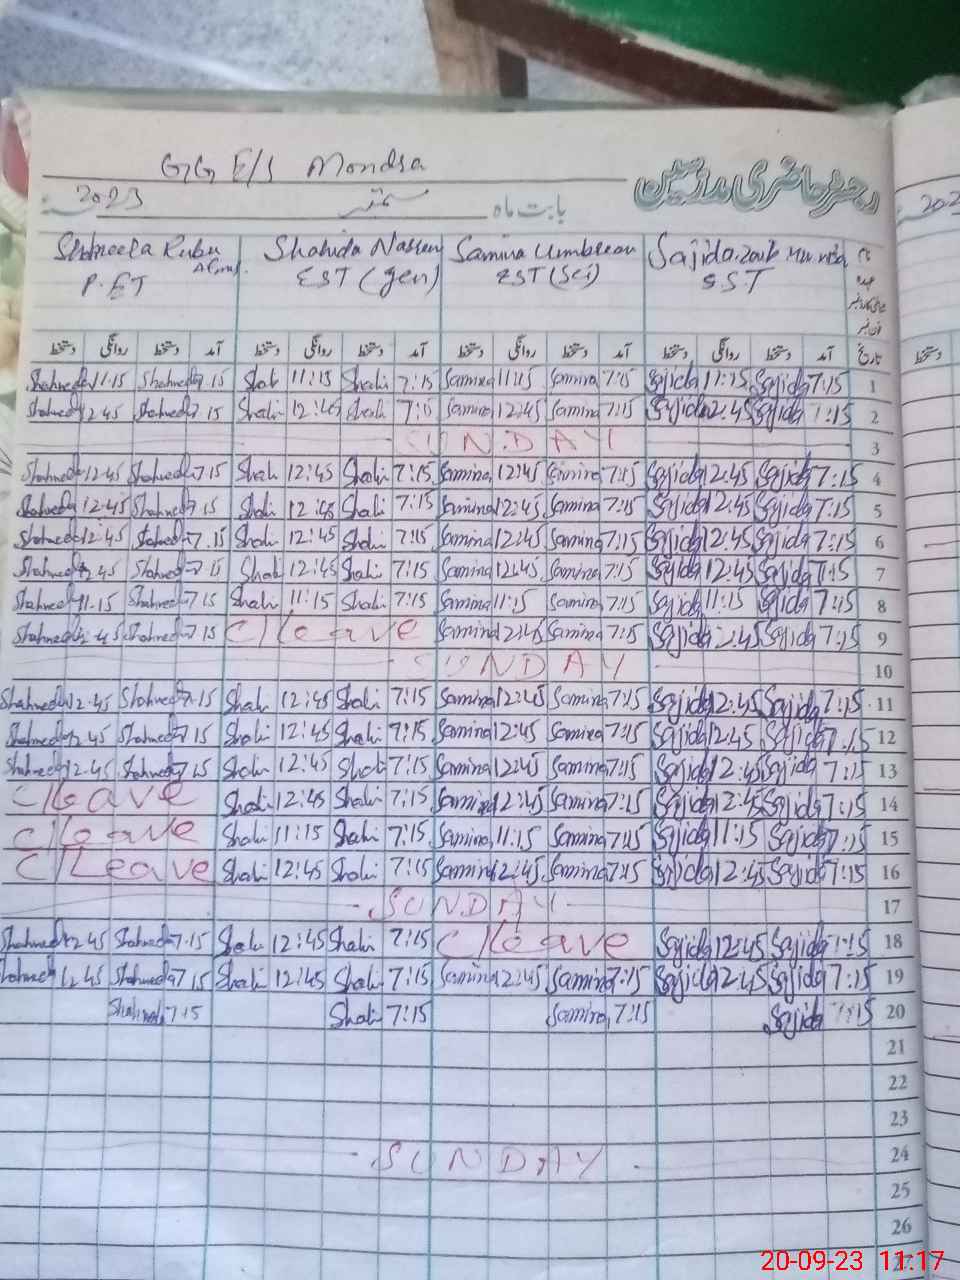 GG E/S Mondsa
رجسٹر حاضری مدرسین
2023 سنہ ستمبر بابت ماہ
Shahneela Rubu Shahida Nasseen Samina Umbreen Sajida نام
P.ET EST (gen) EST (Sci) S.S.T عہدہ
دستخط روانگی دستخط آمد دستخط روانگی دستخط آمد دستخط روانگی دستخط آمد دستخط روانگی دستخط آمد تاریخ
Shahneela 11.15 Shahneela 7.15 Shahi 11:15 Shahi 7:15 Samina 11:15 Samina 7:15 Sajida 11:15 Sajida 7:15 1
Shahneela 12.45 Shahneela 7.15 Shahi 12:45 Shahi 7:15 Samina 12:45 Samina 7:15 Sajida 12:45 Sajida 7:15 2
SUNDAY 3
Shahneela 12.45 Shahneela 7.15 Shahi 12:45 Shahi 7:15 Samina 12:45 Samina 7:15 Sajida 12:45 Sajida 7:15 4
Shahneela 12.45 Shahneela 7.15 Shahi 12:45 Shahi 7:15 Samina 12:45 Samina 7:15 Sajida 12:45 Sajida 7:15 5
Shahneela 12.45 Shahneela 7.15 Shahi 12:45 Shahi 7:15 Samina 12:45 Samina 7:15 Sajida 12:45 Sajida 7:15 6
Shahneela 12.45 Shahneela 7.15 Shahi 12:45 Shahi 7:15 Samina 12:45 Samina 7:15 Sajida 12:45 Sajida 7:15 7
Shahneela 11.15 Shahneela 7.15 Shahi 11:15 Shahi 7:15 Samina 11:15 Samina 7:15 Sajida 11:15 Sajida 7:15 8
Shahneela 12.45 Shahneela 7.15 C/leave Samina 12:45 Samina 7:15 Sajida 12:45 Sajida 7:15 9
SUNDAY 10
Shahneela 12.45 Shahneela 7.15 Shahi 12:45 Shahi 7:15 Samina 12:45 Samina 7:15 Sajida 12:45 Sajida 7:15 11
Shahneela 12.45 Shahneela 7.15 Shahi 12:45 Shahi 7:15 Samina 12:45 Samina 7:15 Sajida 12:45 Sajida 7:15 12
Shahneela 12.45 Shahneela 7.15 Shahi 12:45 Shahi 7:15 Samina 12:45 Samina 7:15 Sajida 12:45 Sajida 7:15 13
C/leave Shahi 12:45 Shahi 7:15 Samina 12:45 Samina 7:15 Sajida 12:45 Sajida 7:15 14
C/leave Shahi 11:15 Shahi 7:15 Samina 11:15 Samina 7:15 Sajida 11:15 Sajida 7:15 15
C/Leave Shahi 12:45 Shahi 7:15 Samina 12:45 Samina 7:15 Sajida 12:45 Sajida 7:15 16
SUNDAY 17
Shahneela 12.45 Shahneela 7.15 Shahi 12:45 Shahi 7:15 C/leave Sajida 12:45 Sajida 7:15 18
Shahneela 12.45 Shahneela 7.15 Shahi 12:45 Shahi 7:15 Samina 12:45 Samina 7:15 Sajida 12:45 Sajida 7:15 19
Shahneela 7.15 Shahi 7:15 Samina 7:15 Sajida 7:15 20
21
22
23
SUNDAY 24
25
26
27
20-09-23 11:17